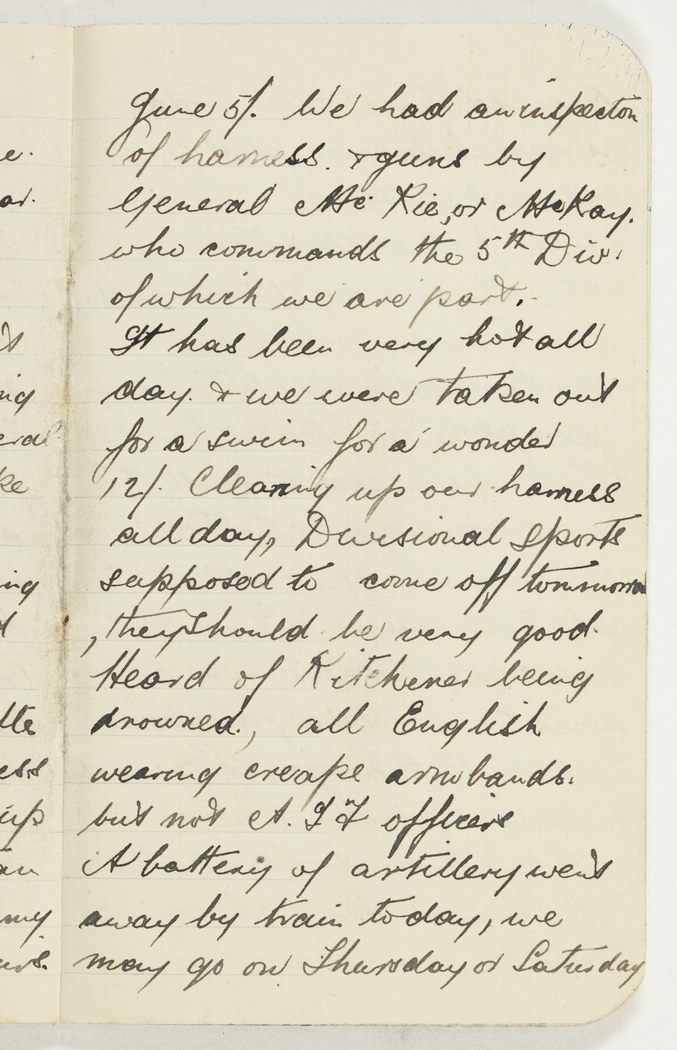 e.
ar.
ing
eral
ke
ing
d
tte
ess
up
an
my
urs.
June 5/. We had an inspecton
of harness. & guns by
General Mc Kie, or McKay.
who commands the 5th Div.
of which we are part.
It has been very hot all
day. & we were taken out
for a swim for a wonder
12/. Cleaning up our harness
all day, Divisional Sports
supposed to come off tommorrow
, they should be very good.
Heard of Kitchener being
drowned, all English
wearing creape armbands.
but not A.I F officers
A battery of artillery went
away by train today, we
may go on Thursday or Saturday